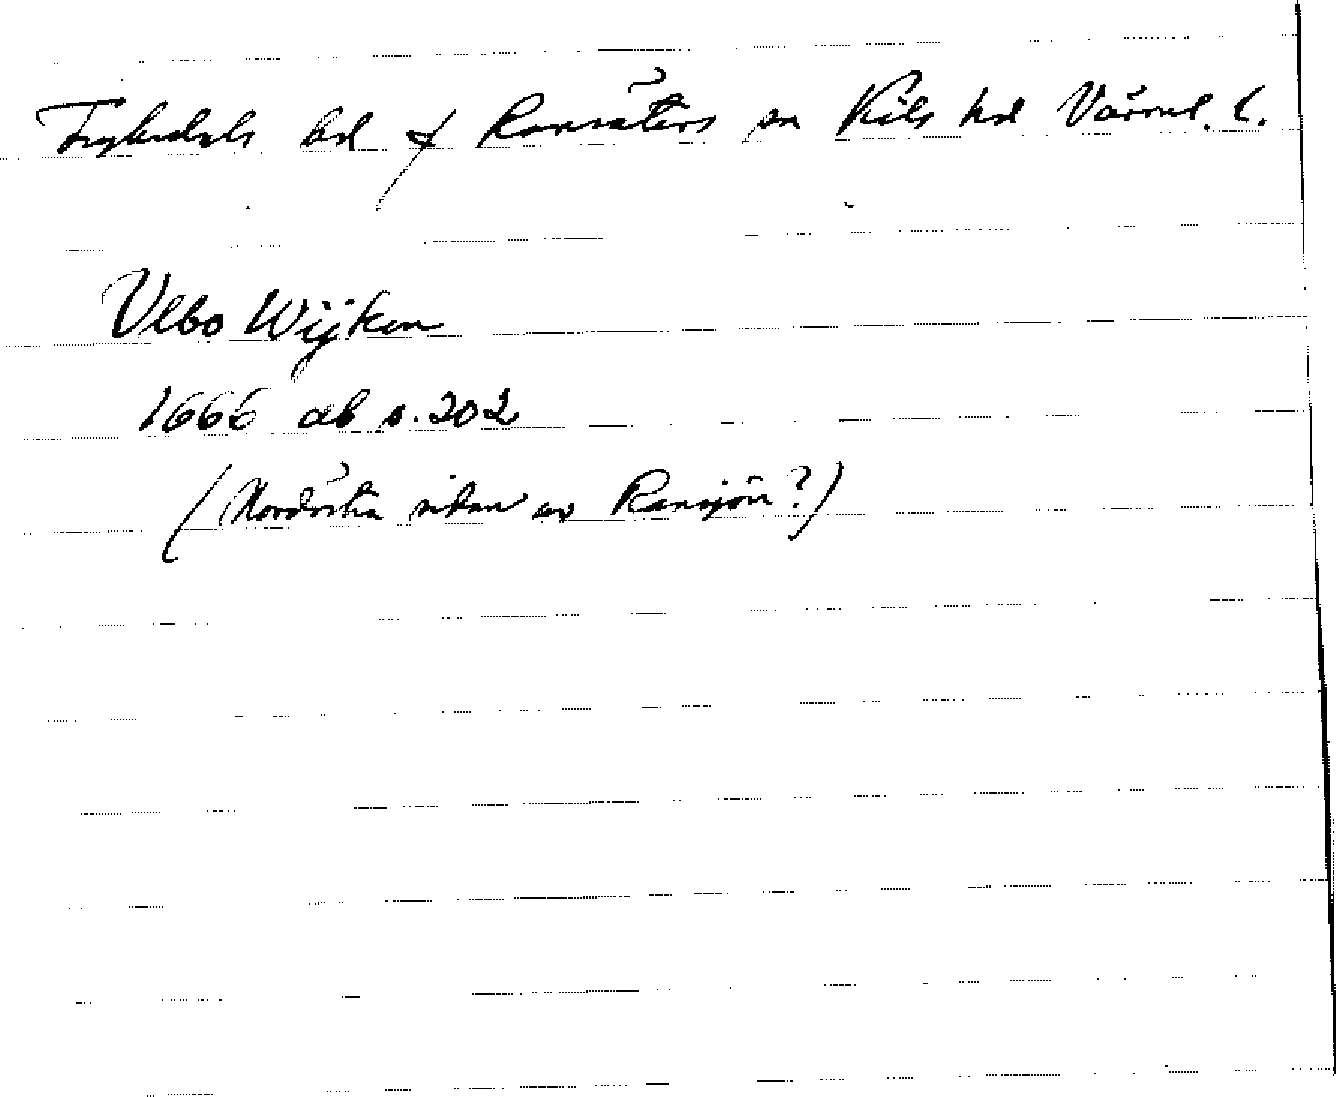 Fryksdals hd & Ransäters sn Kils hd Värml. l.
Ulbo Wijken
1666 ab s. 202
(Nordöstra sidan av Ransjön?)